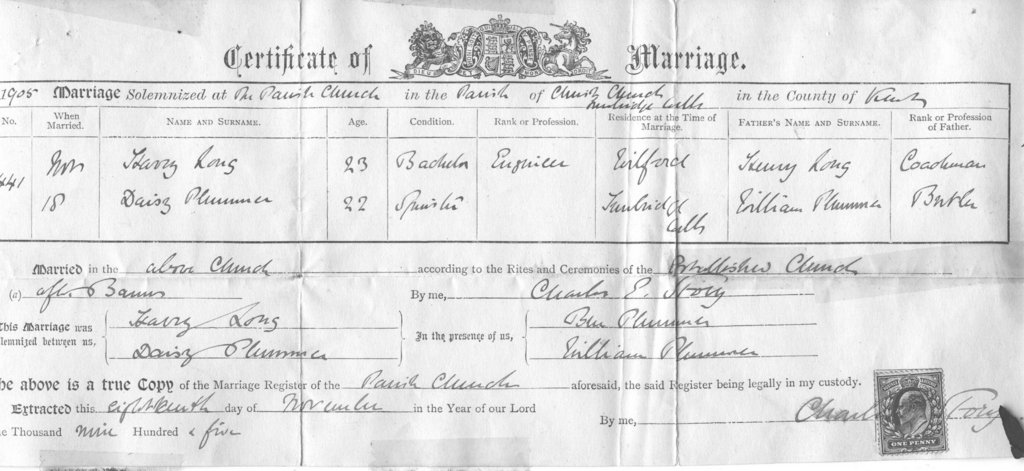 Certificate of Marriage.
1905 Marriage Solemnized at The Parish Church in the Parish of Christ Church Tunbridge Wells in the County of Kent
No. When Married. NAME AND SURNAME. Age. Condition. Rank or Profession. Residence at the Time of Marriage. FATHER'S NAME AND SURNAME. Rank or Profession of Father.
441 Nov 18 Harry Long 23 Bachelor Engineer Henry Long Coachman
Daisy Plummer 22 Spinster Tunbridge Wells William Plummer Butler
Married in the above Church according to the Rites and Ceremonies of the Established Church
(a) after Banns By me, Charles E. Story
This Marriage was solemnized between us, Harry Long Daisy Plummer In the presence of us, Ben Plummer William Plummer
he above is a true Copy of the Marriage Register of the Parish Church aforesaid, the said Register being legally in my custody.
Extracted this eighteenth day of November in the Year of our Lord
e Thousand nine Hundred & five By me, Charles Story
ONE PENNY